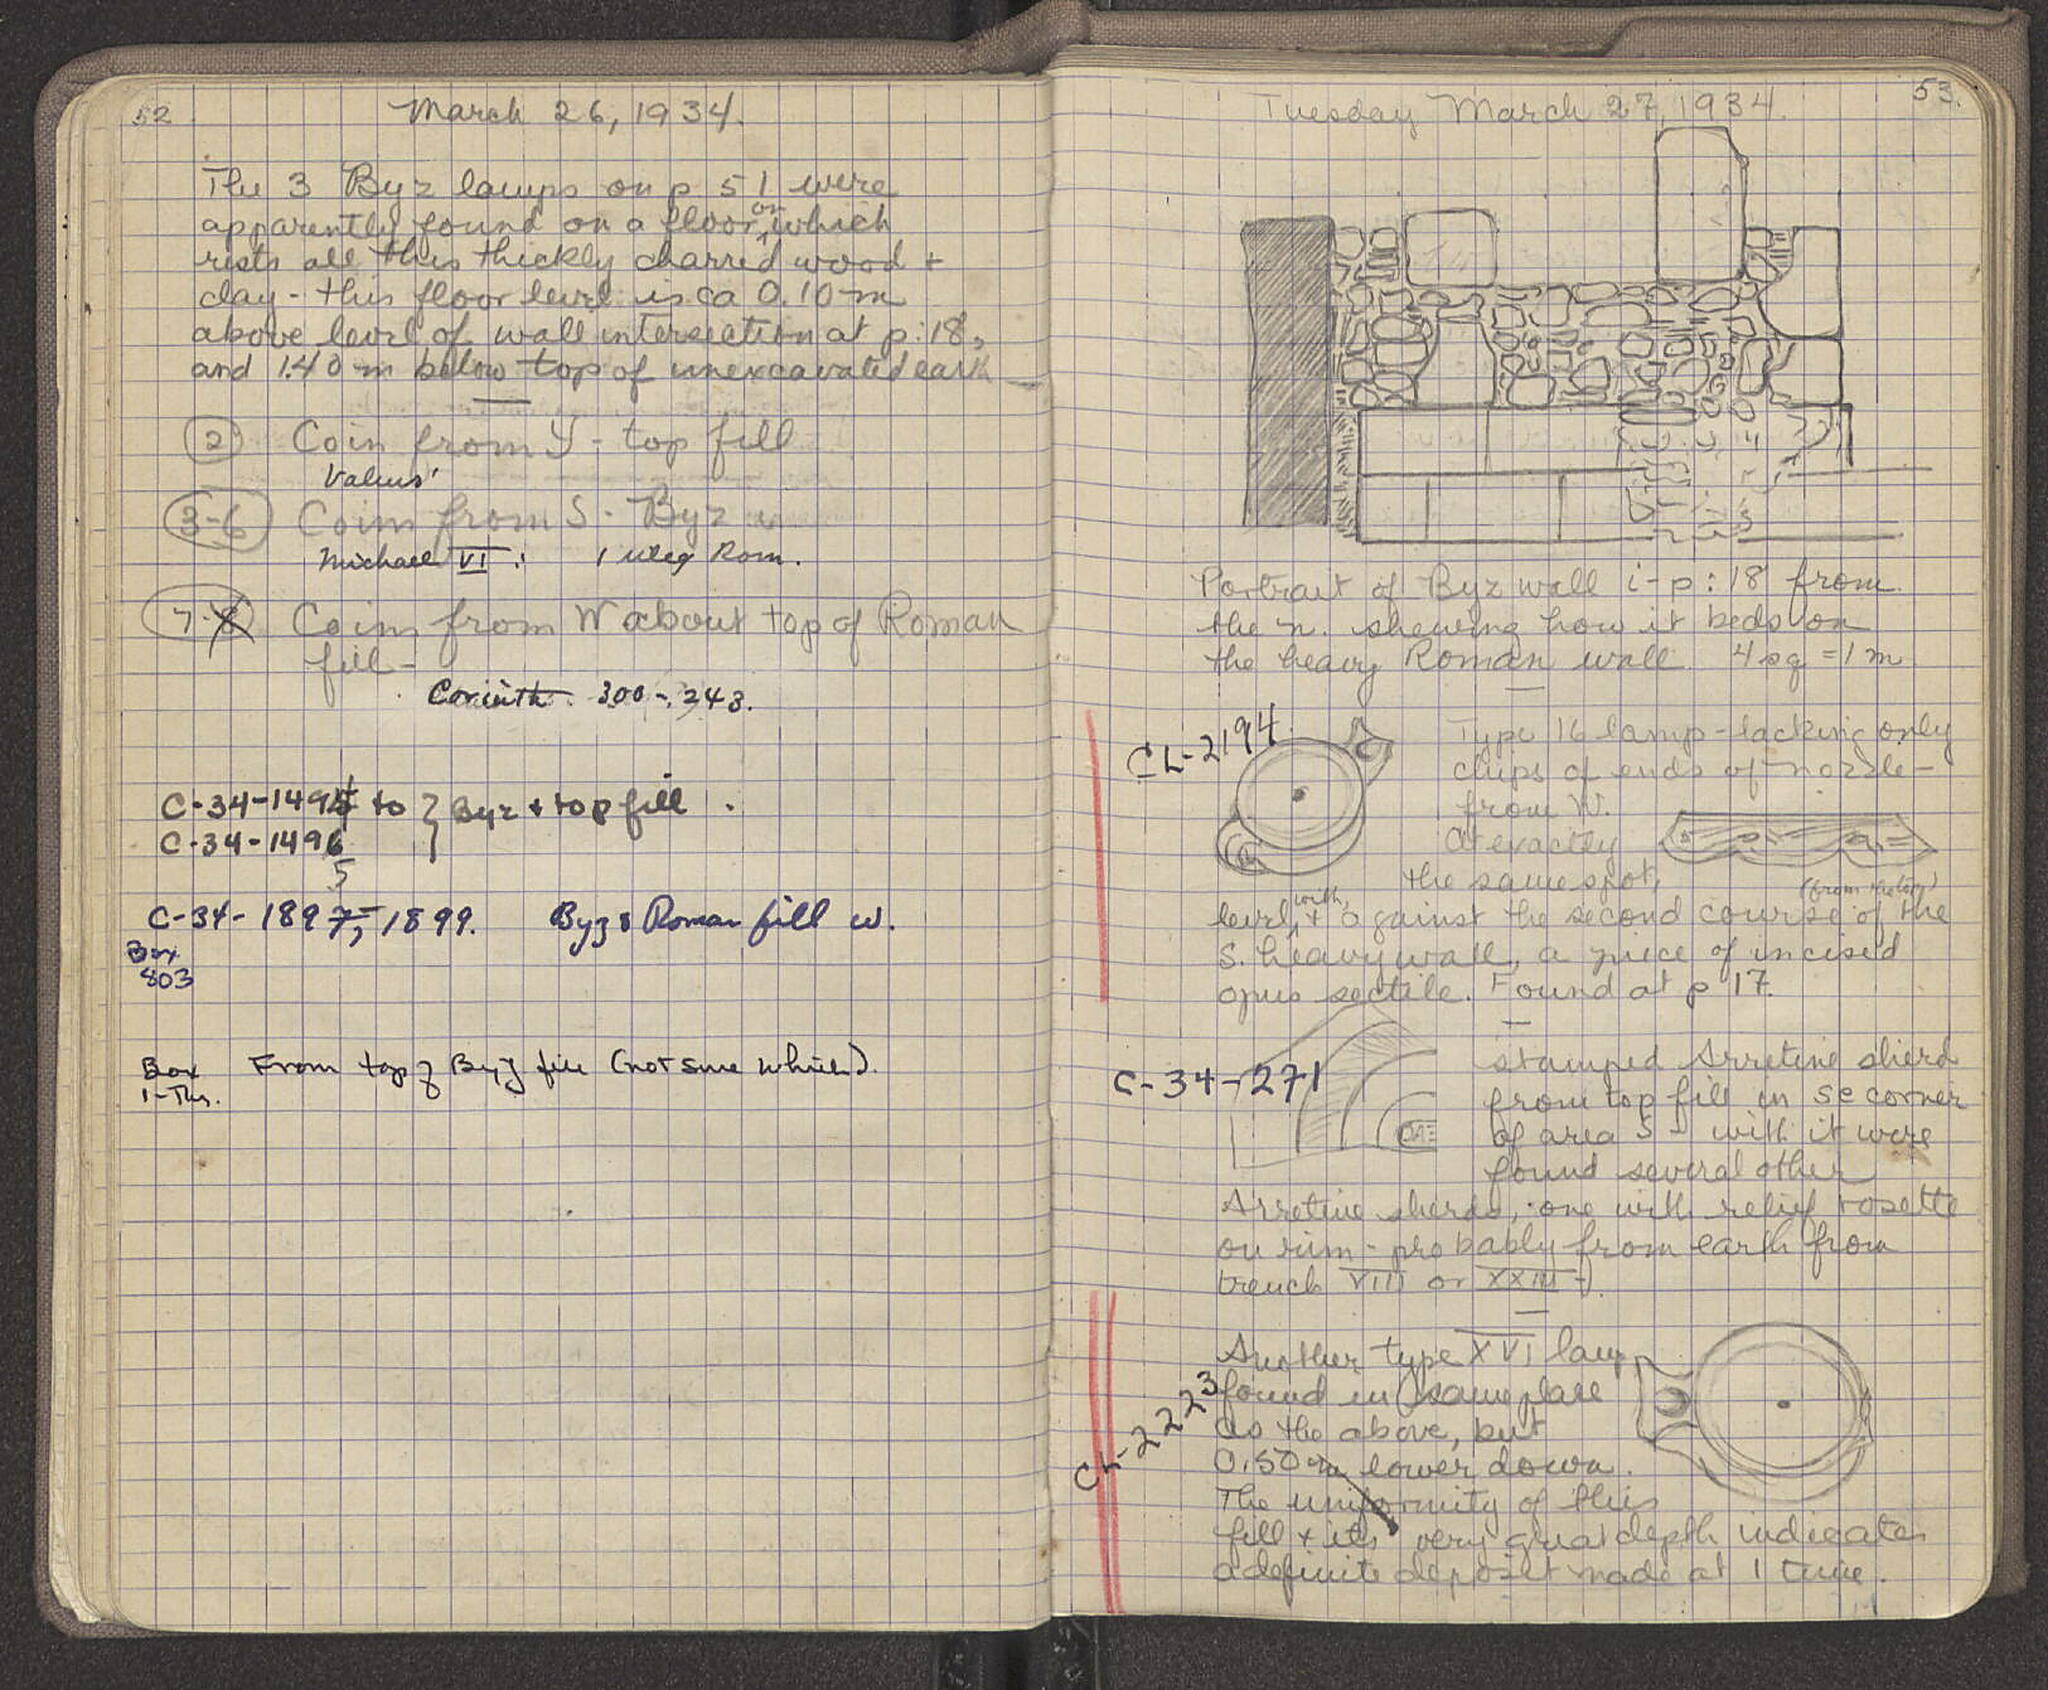 52
March 26, 1934.
The 3 Byz lamps on p 51 were
apparently found on a floor, on which
rests all this thickly charred wood +
clay - this floor level is ca 0.10 m
above level of wall intersection at p:18,
and 1.40 m below top of unexcavated earth
② Coin from Y - top fill
3-6 Coins from S. Byz
Michael VI: 1 illeg Rom.
7-8 Coins from W about top of Roman
fill -
Corinth 300-243.
C-34-1494 to } Byz + top fill.
C-34-1496
5
C-34-1897, 1899. Byz & Roman fill W.
Box
803
Box From top of Byz fill (not sure which).
1-Ths.
53.
Tuesday March 27, 1934.
Portrait of Byz wall i-p:18 from
the n. shewing how it beds on
the heavy Roman wall 4 sq = 1 m
CL-2194
Type 16 lamp - lacking only
chips of ends of nozzle -
from W.
At exactly
the same spot,
level, with, + against the second course of the
S. heavy wall, a piece of incised
opus sectile. Found at p 17.
C-34-271
Stamped Arretine sherd
from top fill in se corner
of area S - with it were
found several other
Arretine sherds, one with relief rosette
on rim - probably from earth from
trench VIII or XXIII -
CL-2223
Another type XVI lamp
found in same place
as the above, but
0.50 m lower down.
The uniformity of this
fill + its very great depth indicates
a definite deposit made at 1 time.